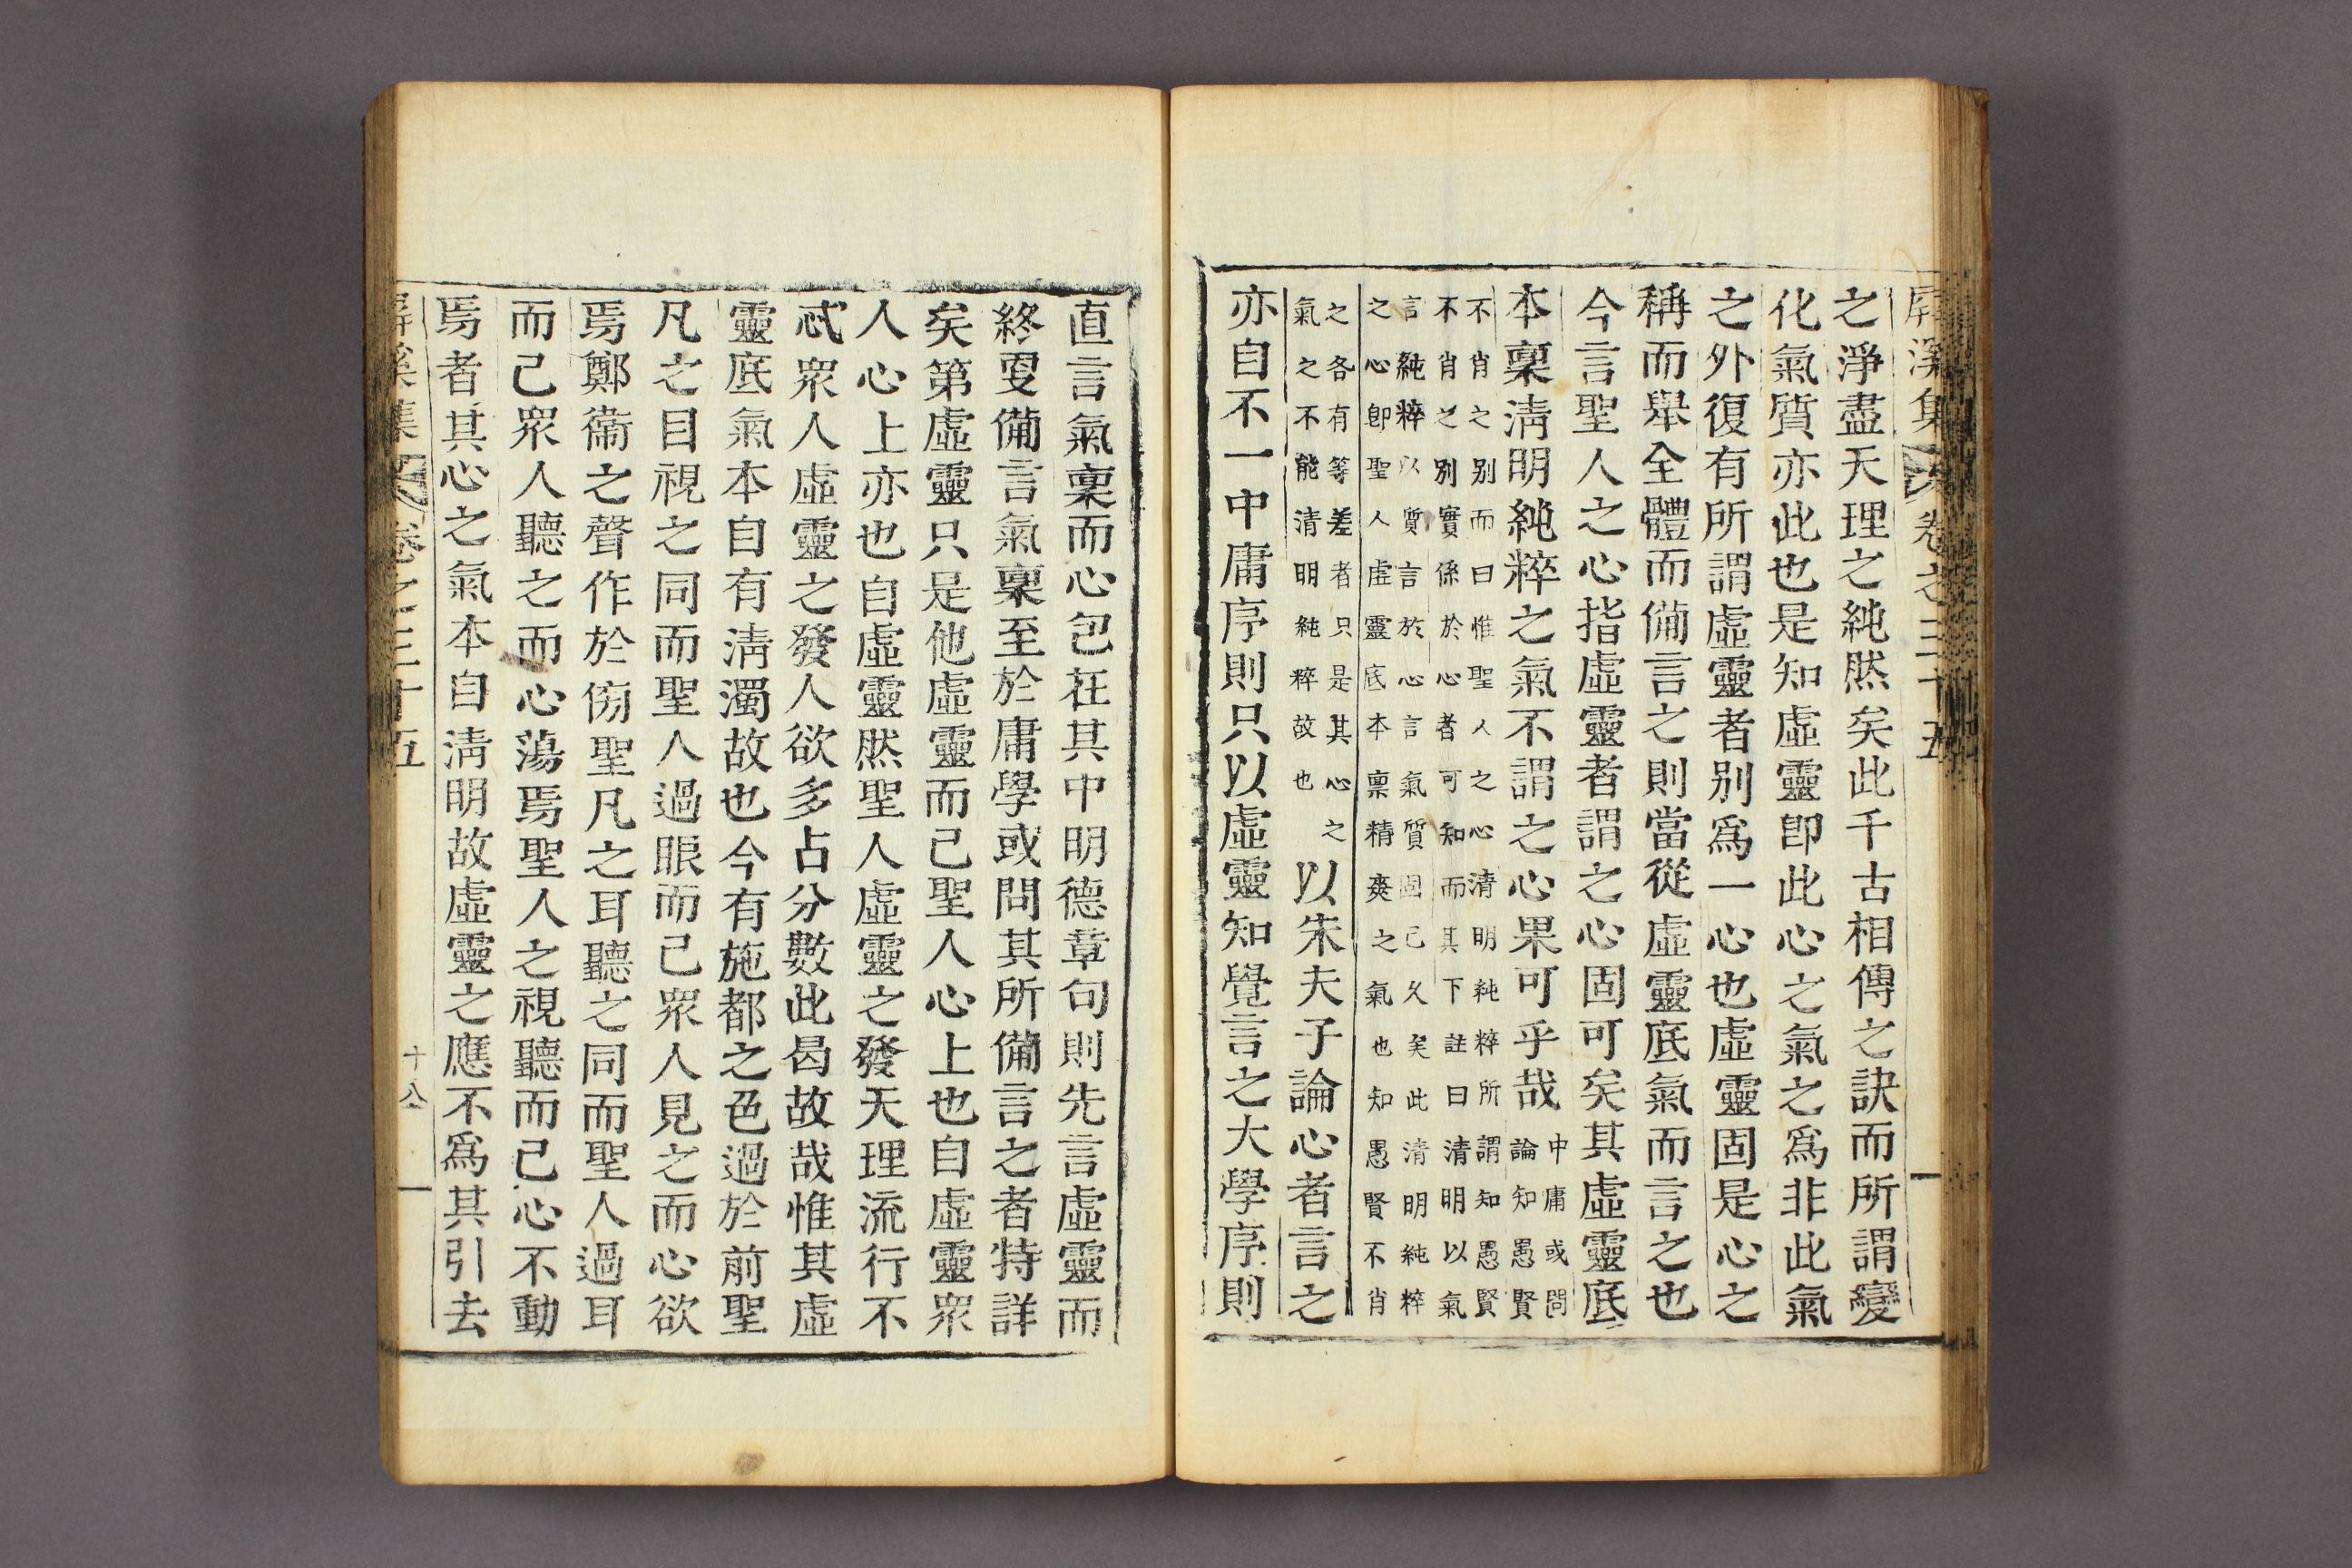 屛溪集 卷之三十五
之淨盡天理之純然矣此千古相傳之訣而所謂變
化氣質亦此也是知虛靈卽此心之氣之爲非此氣
之外復有所謂虛靈者别爲一心也虛靈固是心之
稱而舉全體而備言之則當從虛靈底氣而言之也
今言聖人之心指虛靈者謂之心固可矣其虛靈底
本稟淸明純粹之氣不謂之心果可乎哉
中庸或問
論知愚賢
不肖之别而曰惟聖人之心清明純粹所謂知愚賢
不肖之别實係於心者可知而其下註曰清明以氣
言純粹以質言於心言氣質固已久矣此清明純粹
之心卽聖人虛靈底本稟精爽之氣也知愚賢不肖
之各有等差者只是其心之
氣之不能清明純粹故也
以朱夫子論心者言之
亦自不一中庸序則只以虛靈知覺言之大學序則
直言氣稟而心包在其中明德章句則先言虛靈而
終更備言氣稟至於庸學或問其所備言之者特詳
矣第虛靈只是他虛靈而已聖人心上也自虛靈衆
人心上亦也自虛靈然聖人虛靈之發天理流行不
忒衆人虛靈之發人欲多占分數此曷故哉惟其虛
靈底氣本自有淸濁故也今有施都之色過於前聖
凡之目視之同而聖人過眼而已衆人見之而心欲
焉鄭衞之聲作於傍聖凡之耳聽之同而聖人過耳
而已衆人聽之而心蕩焉聖人之視聽而已心不動
焉者其心之氣本自淸明故虛靈之應不爲其引去
屛溪集 卷之三十五 十八